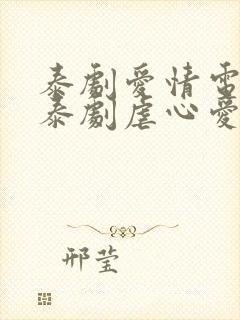 泰劇愛情電
泰劇虐心愛
邢莹